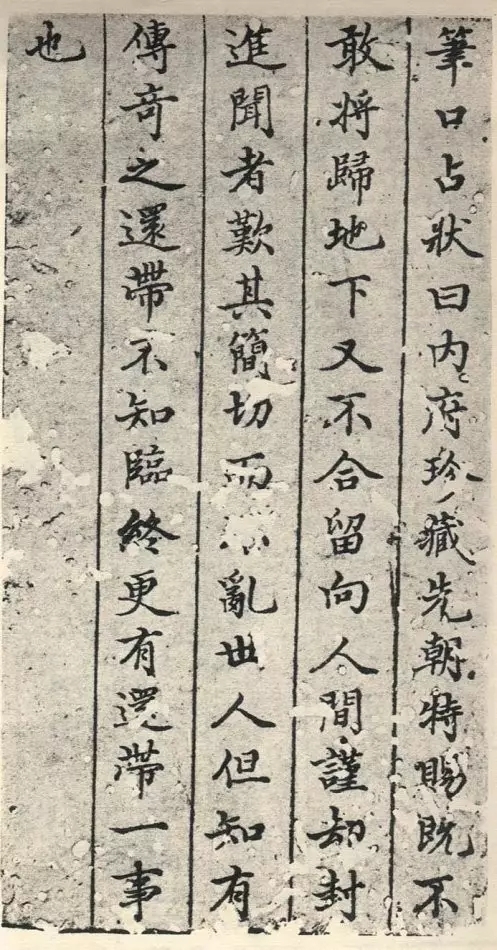 筆口占狀曰內府珍藏先朝特賜既不
敢將歸地下又不合留向人間謹却封
進聞者歎其簡切而不亂世人但知有
傳奇之還帶不知臨終更有還帶一事
也